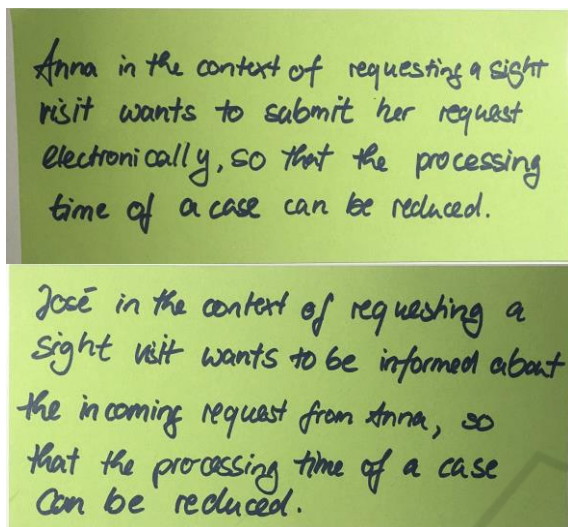 Anna in the context of requesting a sight
visit wants to submit her request
electronically, so that the processing
time of a case can be reduced.
José in the context of requesting a
sight visit wants to be informed about
the incoming request from Anna, so
that the processing time of a case
can be reduced.